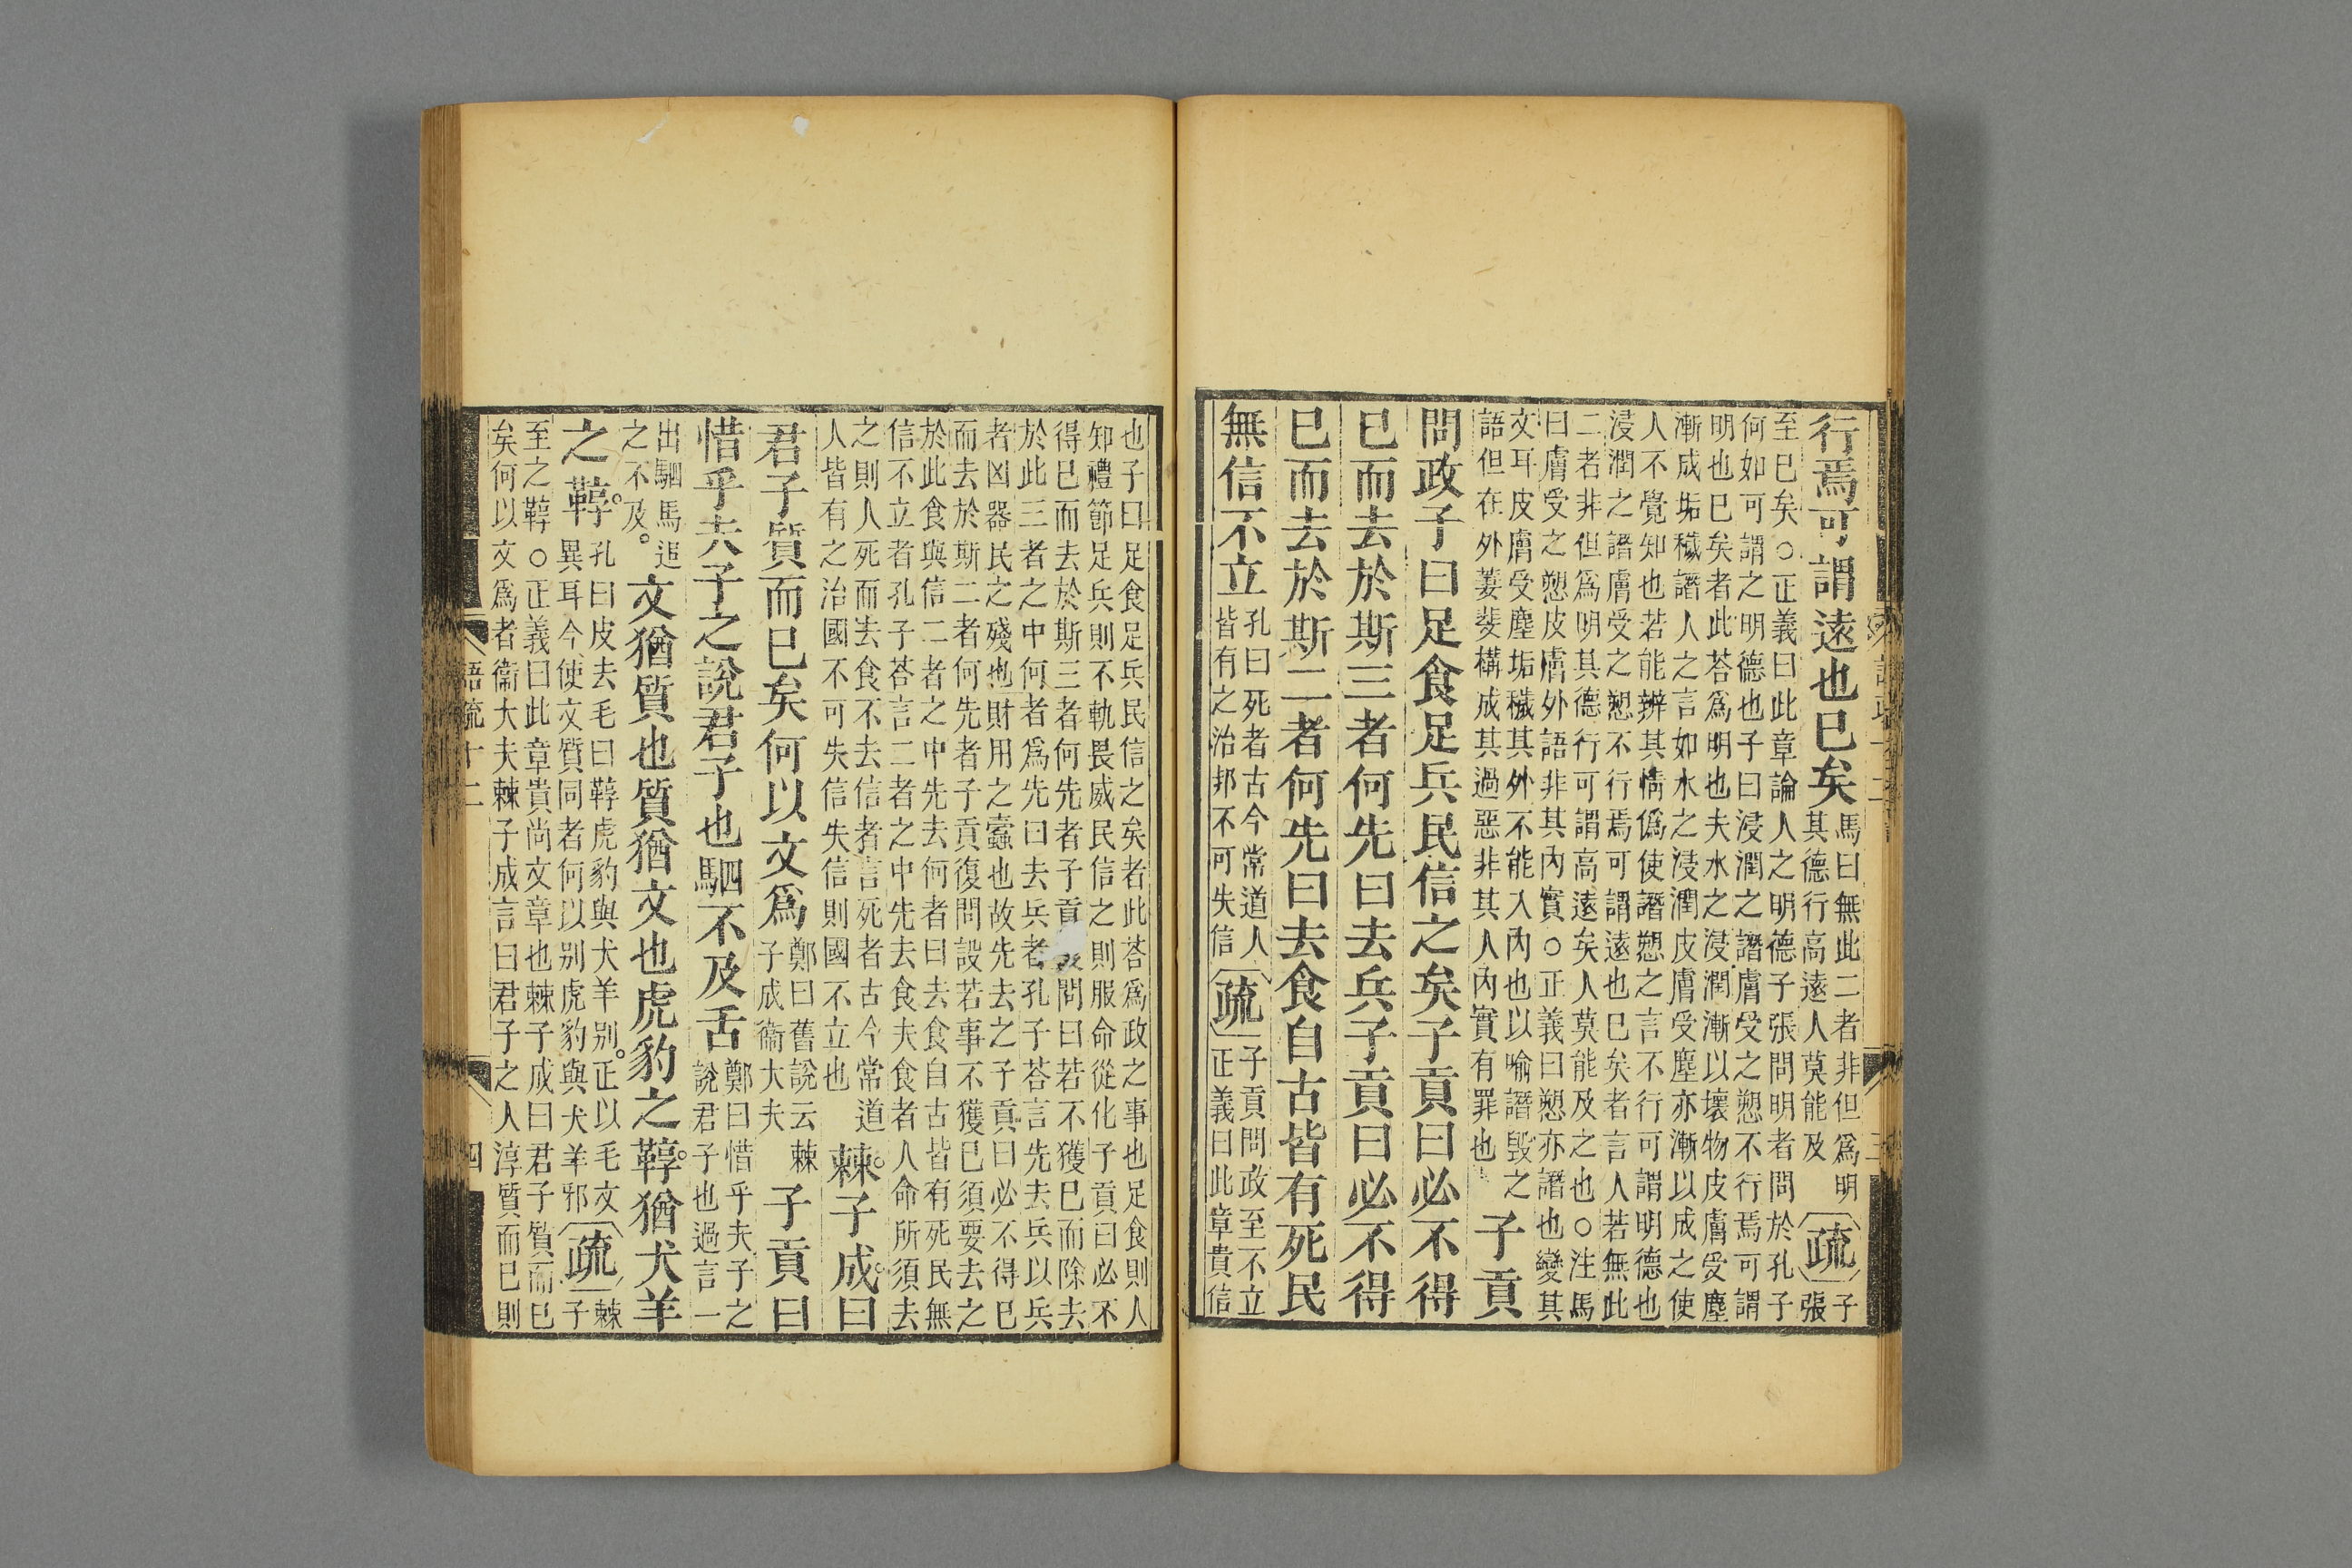 行焉可謂遠也已矣馬曰無此二者非但爲明其德行高遠人莫能及疏子張
至已矣○正義曰此章論人之明德子張問明者問於孔子
何如可謂之明德也子曰浸潤之譖膚受之愬不行焉可謂
明也已矣者此荅爲明也夫水之浸潤漸以壞物皮膚受塵
漸成垢穢譖人之言如水之浸潤皮膚受塵亦漸以成之使
人不覺知也若能辨其情僞使譖愬之言不行可謂明德也
浸潤之譖膚受之愬不行焉可謂遠也已矣者言人若無此
二者非但爲明其德行可謂高遠矣人莫能及之也○注馬
曰膚受之愬皮膚外語非其內實○正義曰愬亦譖也變其
文耳皮膚受塵垢穢其外不能入內也以喻譖毀之
語但在外萋斐構成其過惡非其人內實有罪也子貢
問政子曰足食足兵民信之矣子貢曰必不得
已而去於斯三者何先曰去兵子貢曰必不得
已而去於斯二者何先曰去食自古皆有死民
無信不立孔曰死者古今常道人皆有之治邦不可失信疏子貢問政至不立正義曰此章貴信
也子曰足食足兵民信之矣者此荅爲政之事也足食則人
知禮節足兵則不軌畏威民信之則服命從化子貢曰必不
得已而去於斯三者何先者子貢問曰若不獲已而除去
於此三者之中何者爲先曰去兵者孔子荅言先去兵以兵
者凶器民之殘也財用之蠹也故先去之子貢曰必不得已
而去於斯二者何先者子貢復問設若事不獲已須要去之
於此食與信二者之中先去何者曰去食自古皆有死民無
信不立者孔子荅言二者之中先去食夫食者人命所須去
之則人死而去食不去信者言死者古今常道
人皆有之治國不可失信失信則國不立也棘子成曰
君子質而已矣何以文爲鄭曰舊說云棘子成衞大夫子貢曰
惜乎夫子之說君子也駟不及舌鄭曰惜乎夫子之說君子也過言一
出駟馬追之不及。文猶質也質猶文也虎豹之鞟猶犬羊
之鞟。孔曰皮去毛曰鞟虎豹與犬羊別。正以毛文異耳今使文質同者何以別虎豹與犬羊邪疏棘子
至之鞟○正義曰此章貴尚文章也棘子成曰君子質而已
矣何以文爲者衞大夫棘子成言曰君子之人淳質而已則
語疏十二
四